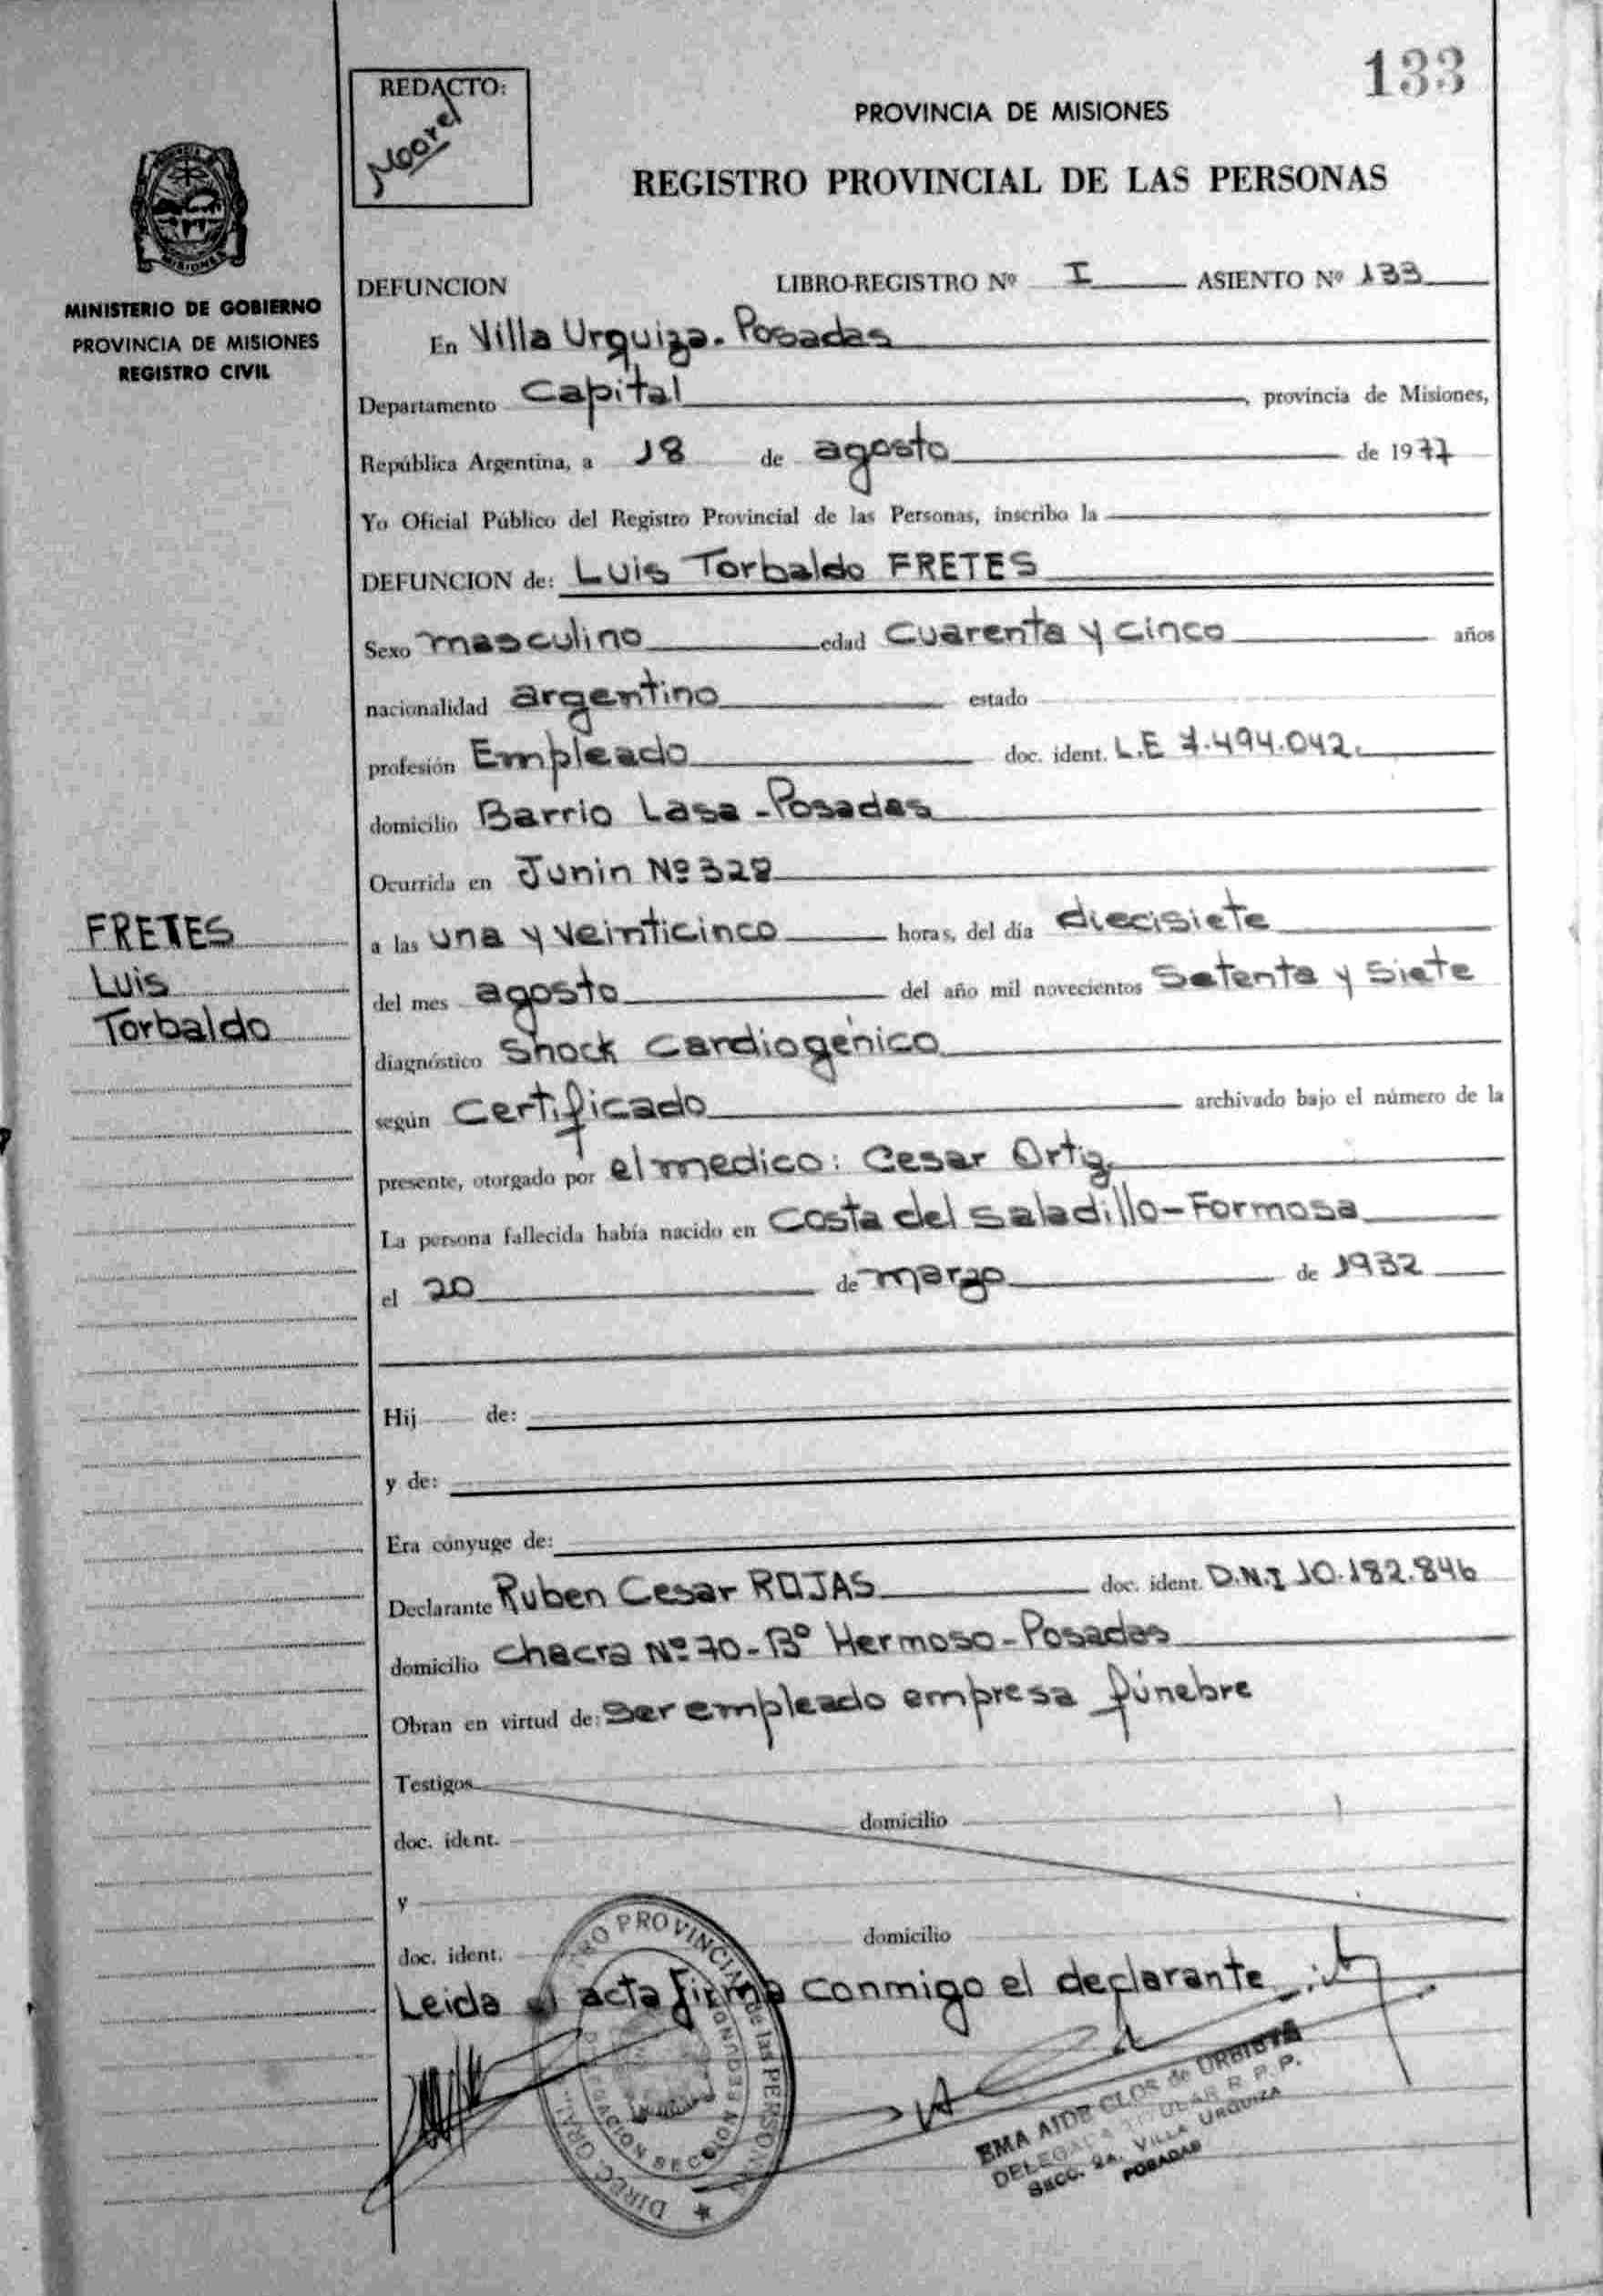 133
REDACTO:
PROVINCIA DE MISIONES
REGISTRO PROVINCIAL DE LAS PERSONAS
MISIONES
MINISTERIO DE GOBIERNO
PROVINCIA DE MISIONES
REGISTRO CIVIL
DEFUNCION LIBRO-REGISTRO Nº I ASIENTO Nº 133
En Villa Urquiza. Posadas
Departamento Capital, provincia de Misiones,
República Argentina, a 18 de agosto de 1977
Yo Oficial Público del Registro Provincial de las Personas, inscribo la
DEFUNCION de: Luis Torbaldo FRETES
Sexo masculino edad Cuarenta y cinco años
nacionalidad argentino estado
profesión Empleado doc. ident. L.E 7.494.042.
domicilio Barrio Lasa - Posadas
Ocurrida en Junin Nº 328
FRETES
Luis
Torbaldo
a las una y veinticinco horas, del día diecisiete
del mes agosto del año mil novecientos Setenta y Siete
diagnóstico Shock Cardiogénico
según Certificado archivado bajo el número de la
presente, otorgado por el medico: Cesar Ortiz
La persona fallecida había nacido en Costa del Saladillo - Formosa
el 20 de marzo de 1932
Hij de:
y de:
Era cónyuge de:
Declarante Ruben Cesar ROJAS doc. ident. D.N.I 10.182.846
domicilio Chacra Nº 70 - Bº Hermoso - Posadas
Obran en virtud de: Ser empleado empresa fúnebre
Testigos
doc. ident. domicilio
y
doc. ident. domicilio
Leida el acta firma conmigo el declarante
EMA AIDE CLOS de ORBISTA
DELEGADA TITULAR R. P. P.
SECC. 2a. VILLA URQUIZA
POSADAS